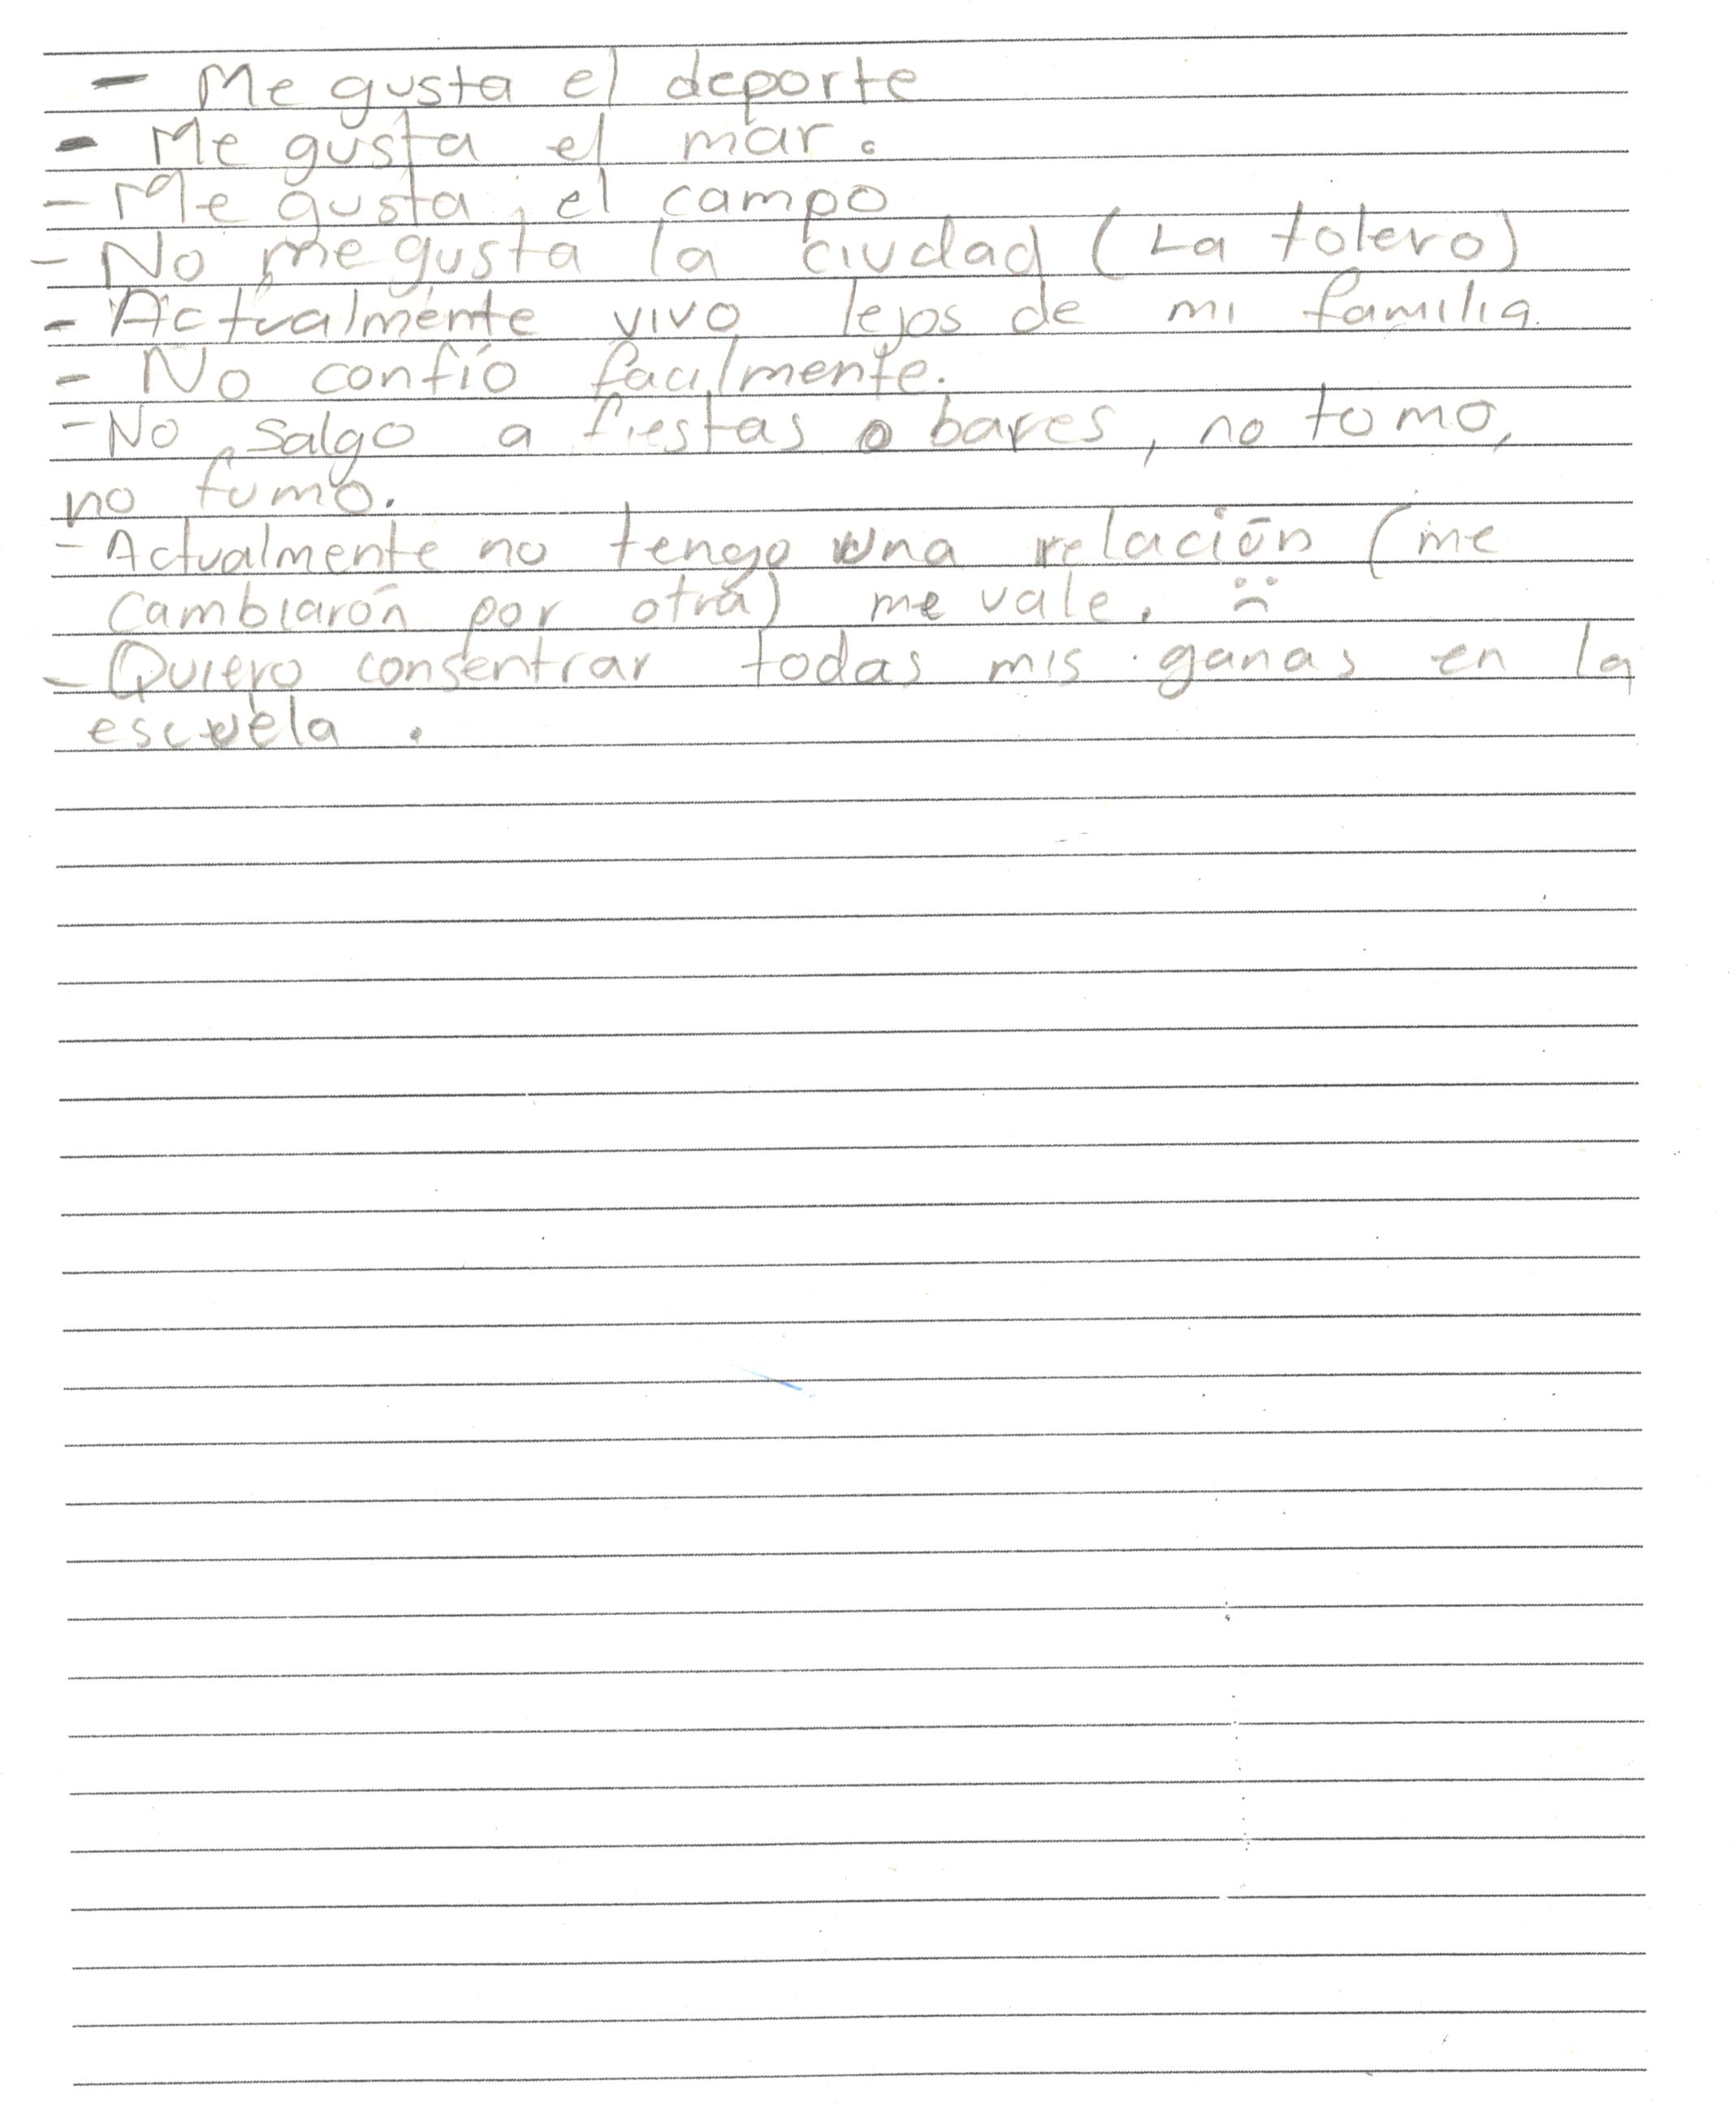 - Me gusta el deporte
- Me gusta el mar.
- Me gusta el campo
- No me gusta la ciudad (La tolero)
- Actualmente vivo lejos de mi familia.
- No confío facilmente.
- No salgo a fiestas o bares, no tomo,
no fumo.
- Actualmente no tengo una relación (me
cambiarón por otra) me vale. :(
- Quiero consentrar todas mis ganas en la
escuela.